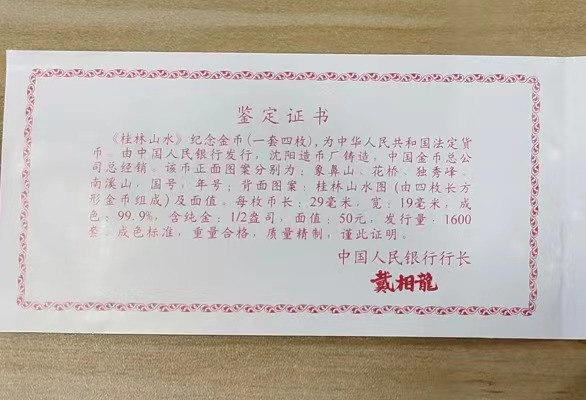 鉴定证书
《桂林山水》纪念金币(一套四枚),为中华人民共和国法定货
币。由中国人民银行发行,沈阳造币厂铸造,中国金币总公
司总经销。该币正面图案分别为:象鼻山、花桥、独秀峰、
南溪山,国号,年号;背面图案:桂林山水图(由四枚长方
形金币组成)及面值。每枚币长:29毫米,宽:19毫米,成
色:99.9%,含纯金:1/2盎司,面值:50元,发行量:1600
套。成色标准,重量合格,质量精制,谨此证明。
中国人民银行行长
戴相龍